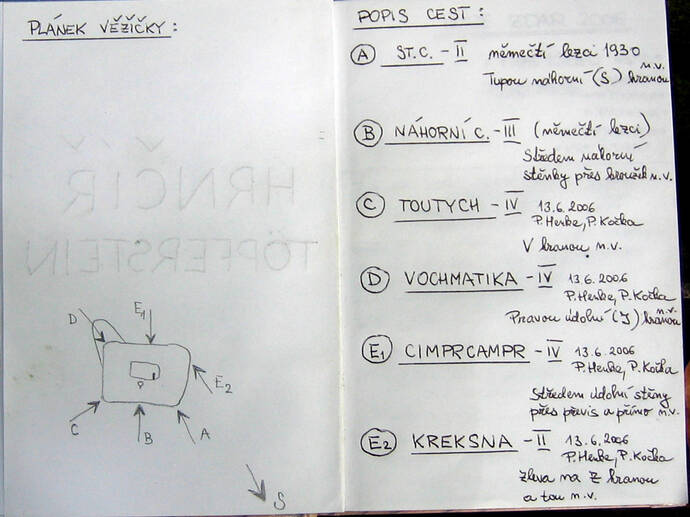 PLÁNEK VĚŽIČKY :
HRNČÍŘ
TÖPFERSTEIN
D
E1
E2
C
B
A
S
POPIS CEST :
A ST.C. - II němečtí lezci 1930
Tupou náhorní (S) hranou n.v.
B NÁHORNÍ C. - III (němečtí lezci)
Středem náhorní
stěnky přes kroužek n.v.
C TOUTYCH - IV 13.6.2006
P.Henke, P.Kočka
V hranou n.v.
D VOCHMATIKA - IV 13.6.2006
P.Henke, P.Kočka
Pravou údolní (J) hranou n.v.
E1 CIMPRCAMPR - IV 13.6.2006
P.Henke, P.Kočka
Středem údolní stěny
přes převis a přímo n.v.
E2 KREKSNA - II 13.6.2006
P.Henke, P.Kočka
zleva na Z hranou
a tou n.v.